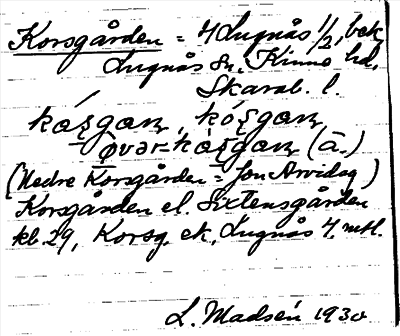 Korsgården = 4 Lugnås 1/2, bek.
Lugnås sn. Kinne hd.
Skarab. l.
kåʂgaɳ, kóʂgaɳ
Øvər-kåʂgaɳ (ä.)
(Nedre Korsgården = Jon Arvidag)
Korsgården el. Sixtensgården
kb. 29, Korsg. ek., Lugnås 4, mtl.
L. Madsén 1930